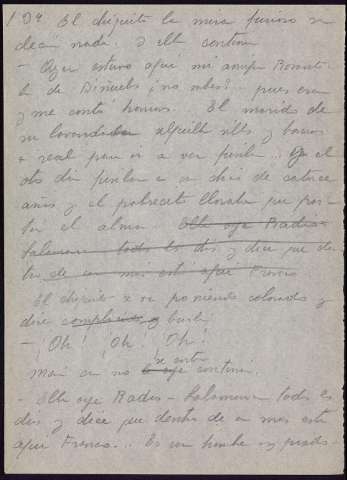 104 El chiquito la mira furioso sin
decir nada. Y ella continua
- Ayer estuvo aqui mi amiga
de ¿no sabes?.. pues esa
y me contó horrores. El marido de
su lavandera alquila sillas y bancos
a real para ir a ver fusilar.. El
otro dia fusilaron a un chico de catorce
años y el pobrecito lloraba que par-
tia el alma. Ella oye Radio
Salamanca todos los dias y dice que den-
tro de un mes está aqui Franco
El chiquito se va poniendo colorado y
dice
- ¡Oh! ¡Oh! ¡Oh!
Mari no se entera continua.
- Ella oye Radio-Salamanca todos los
dias y dice que dentro de un mes está
aqui Franco... Es un hombre muy